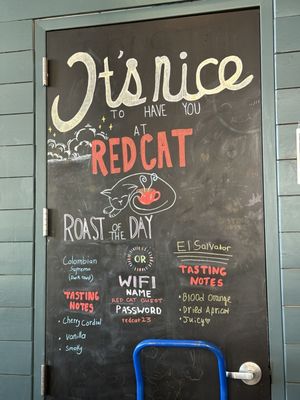 It's nice
TO HAVE YOU
AT
RED CAT
ROAST OF THE DAY
Colombian
Supremo
(Dark Roast)
TASTING
NOTES
• Cherry Cordial
• Vanilla
• Smoky
OR
WIFI
NAME
RED CAT GUEST
PASSWORD
redcat23
El Salvador
TASTING
NOTES
• Blood Orange
• Dried Apricot
• Juicy